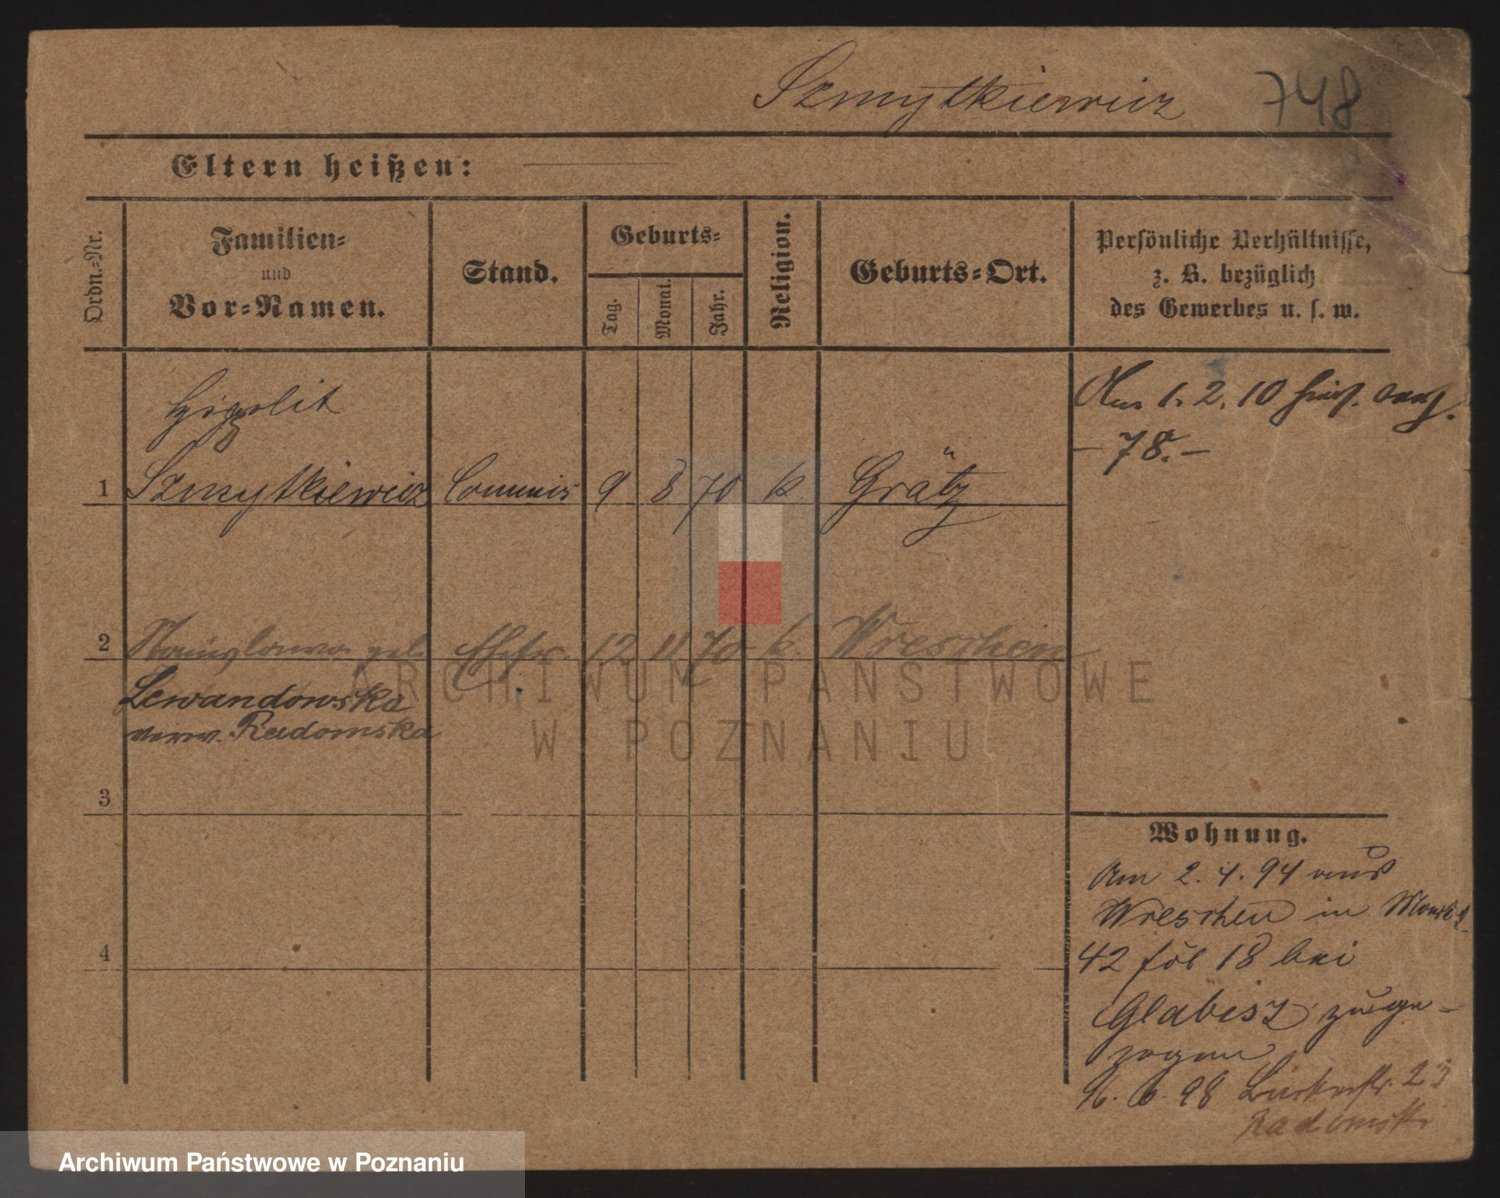 Szmytkiewicz 748
Eltern heißen:
Ordn.-Nr.
Familien-
und
Vor-Namen.
Stand.
Geburts-
Tag.
Monat.
Jahr.
Religion.
Geburts-Ort.
Persönliche Verhältnisse,
z. B. bezüglich
des Gewerbes u. s. w.
Hipolit
1 Szmytkiewicz Commis 9 8 70 k. Grätz
Am 1. 2. 10
- 78. -
2 Stanislawa geb. Ehefr. 12 11 70 k. Wreschen
Lewandowska
verw. Radomska
3
4
Wohnung.
Am 2. 4. 94 aus
Wreschen in
42 18 bei
Glabisz zuge-
zogen
98 23
Radomski
ARCHIWUM PAŃSTWOWE
W POZNANIU
Archiwum Państwowe w Poznaniu